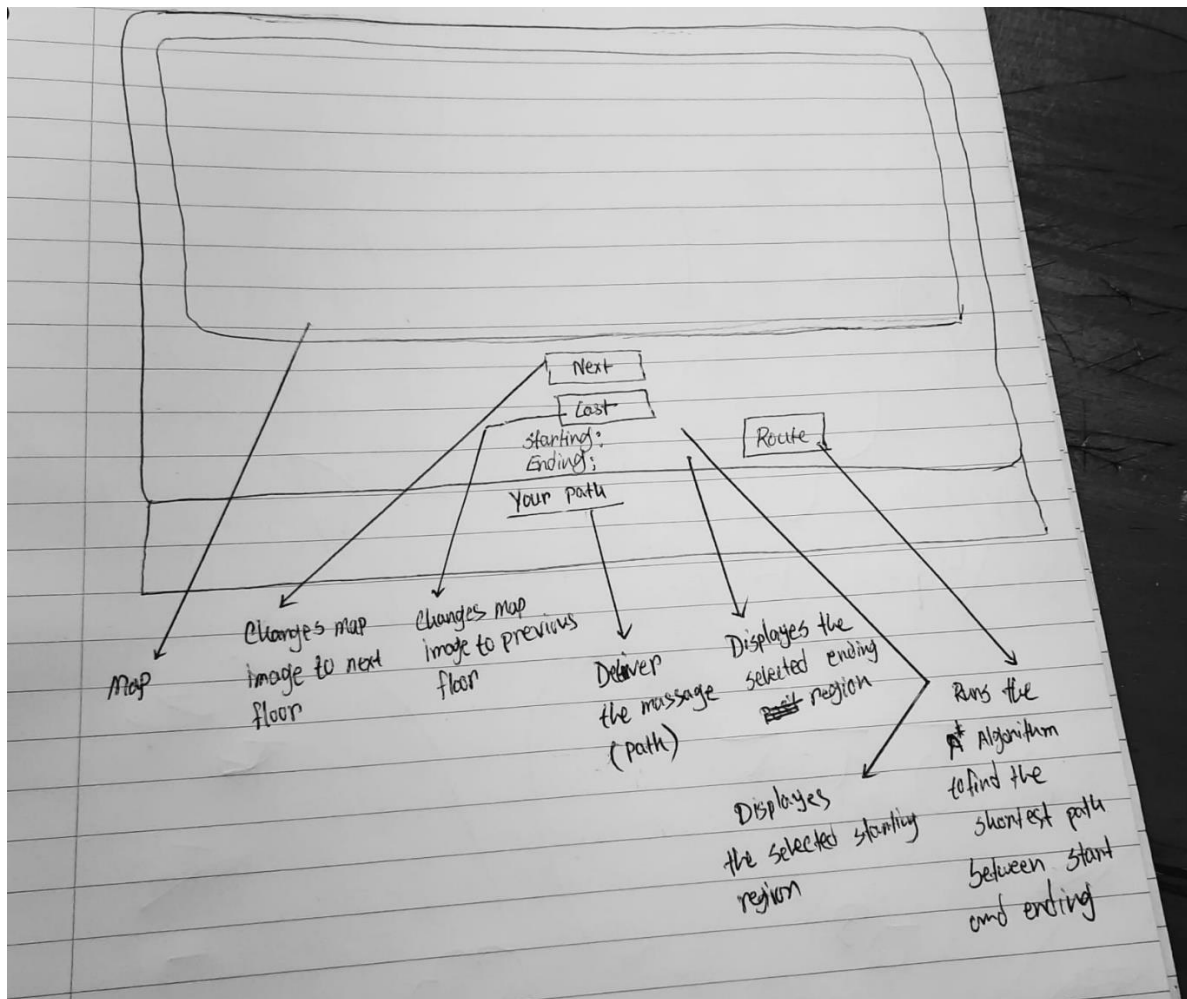 Next
Last
Starting:
Ending:
Route
Your path
Map
Changes map
image to next
floor
Changes map
image to previous
floor
Deliver
the massage
(path)
Displayes the
selected ending
region
Displayes
the selected starting
region
Runs the
A* Algorithm
to find the
shortest path
between start
and ending